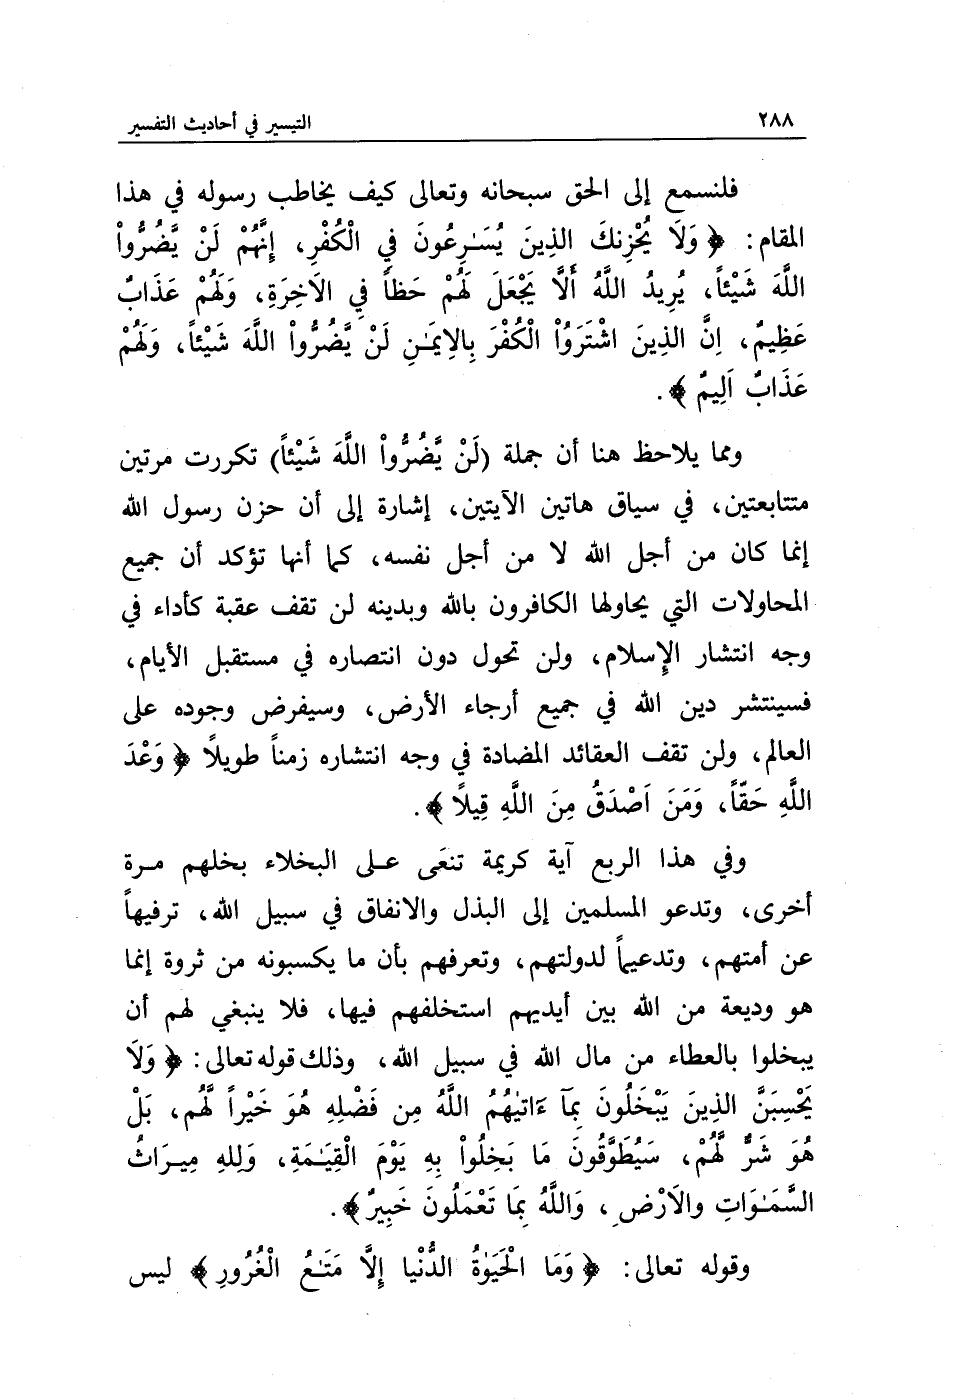 ٢٨٨ التيسير في أحاديث التفسير
فلنسمع إلى الحق سبحانه وتعالى كيف يخاطب رسوله في هذا
المقام: ﴿ وَلَا يُحْزِنكَ الذِينَ يُسَـٰرِعُونَ فِي الْكُفْرِ، إِنَّهُمْ لَنْ يَّضُرُّواْ
اللَّهَ شَيْئاً، يُرِيدُ اللَّهُ أَلَّا يَجْعَلَ لَهُمْ حَظاً فِي الَاخِرَةِ، وَلَهُمْ عَذَابٌ
عَظِيمٌ، اِنَّ الذِينَ اشْتَرَوُاْ الْكُفْرَ بِالِايمَـٰنِ لَنْ يَّضُرُّواْ اللَّهَ شَيْئاً، وَلَهُمْ
عَذَابٌ اَلِيمٌ ﴾.
ومما يلاحظ هنا أن جملة (لَنْ يَّضُرُّواْ اللَّهَ شَيْئاً) تكررت مرتين
متتابعتين، في سياق هاتين الآيتين، إشارة إلى أن حزن رسول الله
إنما كان من أجل الله لا من أجل نفسه، كما أنها تؤكد أن جميع
المحاولات التي يحاولها الكافرون بالله وبدينه لن تقف عقبة كأداء في
وجه انتشار الإسلام، ولن تحول دون انتصاره في مستقبل الأيام،
فسينتشر دين الله في جميع أرجاء الأرض، وسيفرض وجوده على
العالم، ولن تقف العقائد المضادة في وجه انتشاره زمناً طويلاً ﴿ وَعْدَ
اللَّهِ حَقّاً، وَمَنَ اَصْدَقُ مِنَ اللَّهِ قِيلاً ﴾.
وفي هذا الربع آية كريمة تنعَى على البخلاء بخلهم مرة
أخرى، وتدعو المسلمين إلى البذل والانفاق في سبيل الله، ترفيهاً
عن أمتهم، وتدعيماً لدولتهم، وتعرفهم بأن ما يكسبونه من ثروة إنما
هو وديعة من الله بين أيديهم استخلفهم فيها، فلا ينبغي لهم أن
يبخلوا بالعطاء من مال الله في سبيل الله، وذلك قوله تعالى: ﴿ وَلَا
يَحْسِبَنَّ الذِينَ يَبْخَلُونَ بِمَآ ءَاتيٰهُمُ اللَّهُ مِن فَضْلِهِ هُوَ خَيْراً لَّهُم، بَلْ
هُوَ شَرٌّ لَّهُمْ، سَيُطَوَّقُونَ مَا بَخِلُواْ بِهِ يَوْمَ الْقِيَـٰمَةِ، وَلِلهِ مِيرَاثُ
السَّمَـٰوَاتِ والَارْضِ، وَاللَّهُ بِمَا تَعْمَلُونَ خَبِيرٌ ﴾.
وقوله تعالى: ﴿ وَمَا الْحَيَوٰةُ الدُّنْيا إِلَّا مَتَـٰعُ الْغُرُورِ ﴾ ليس